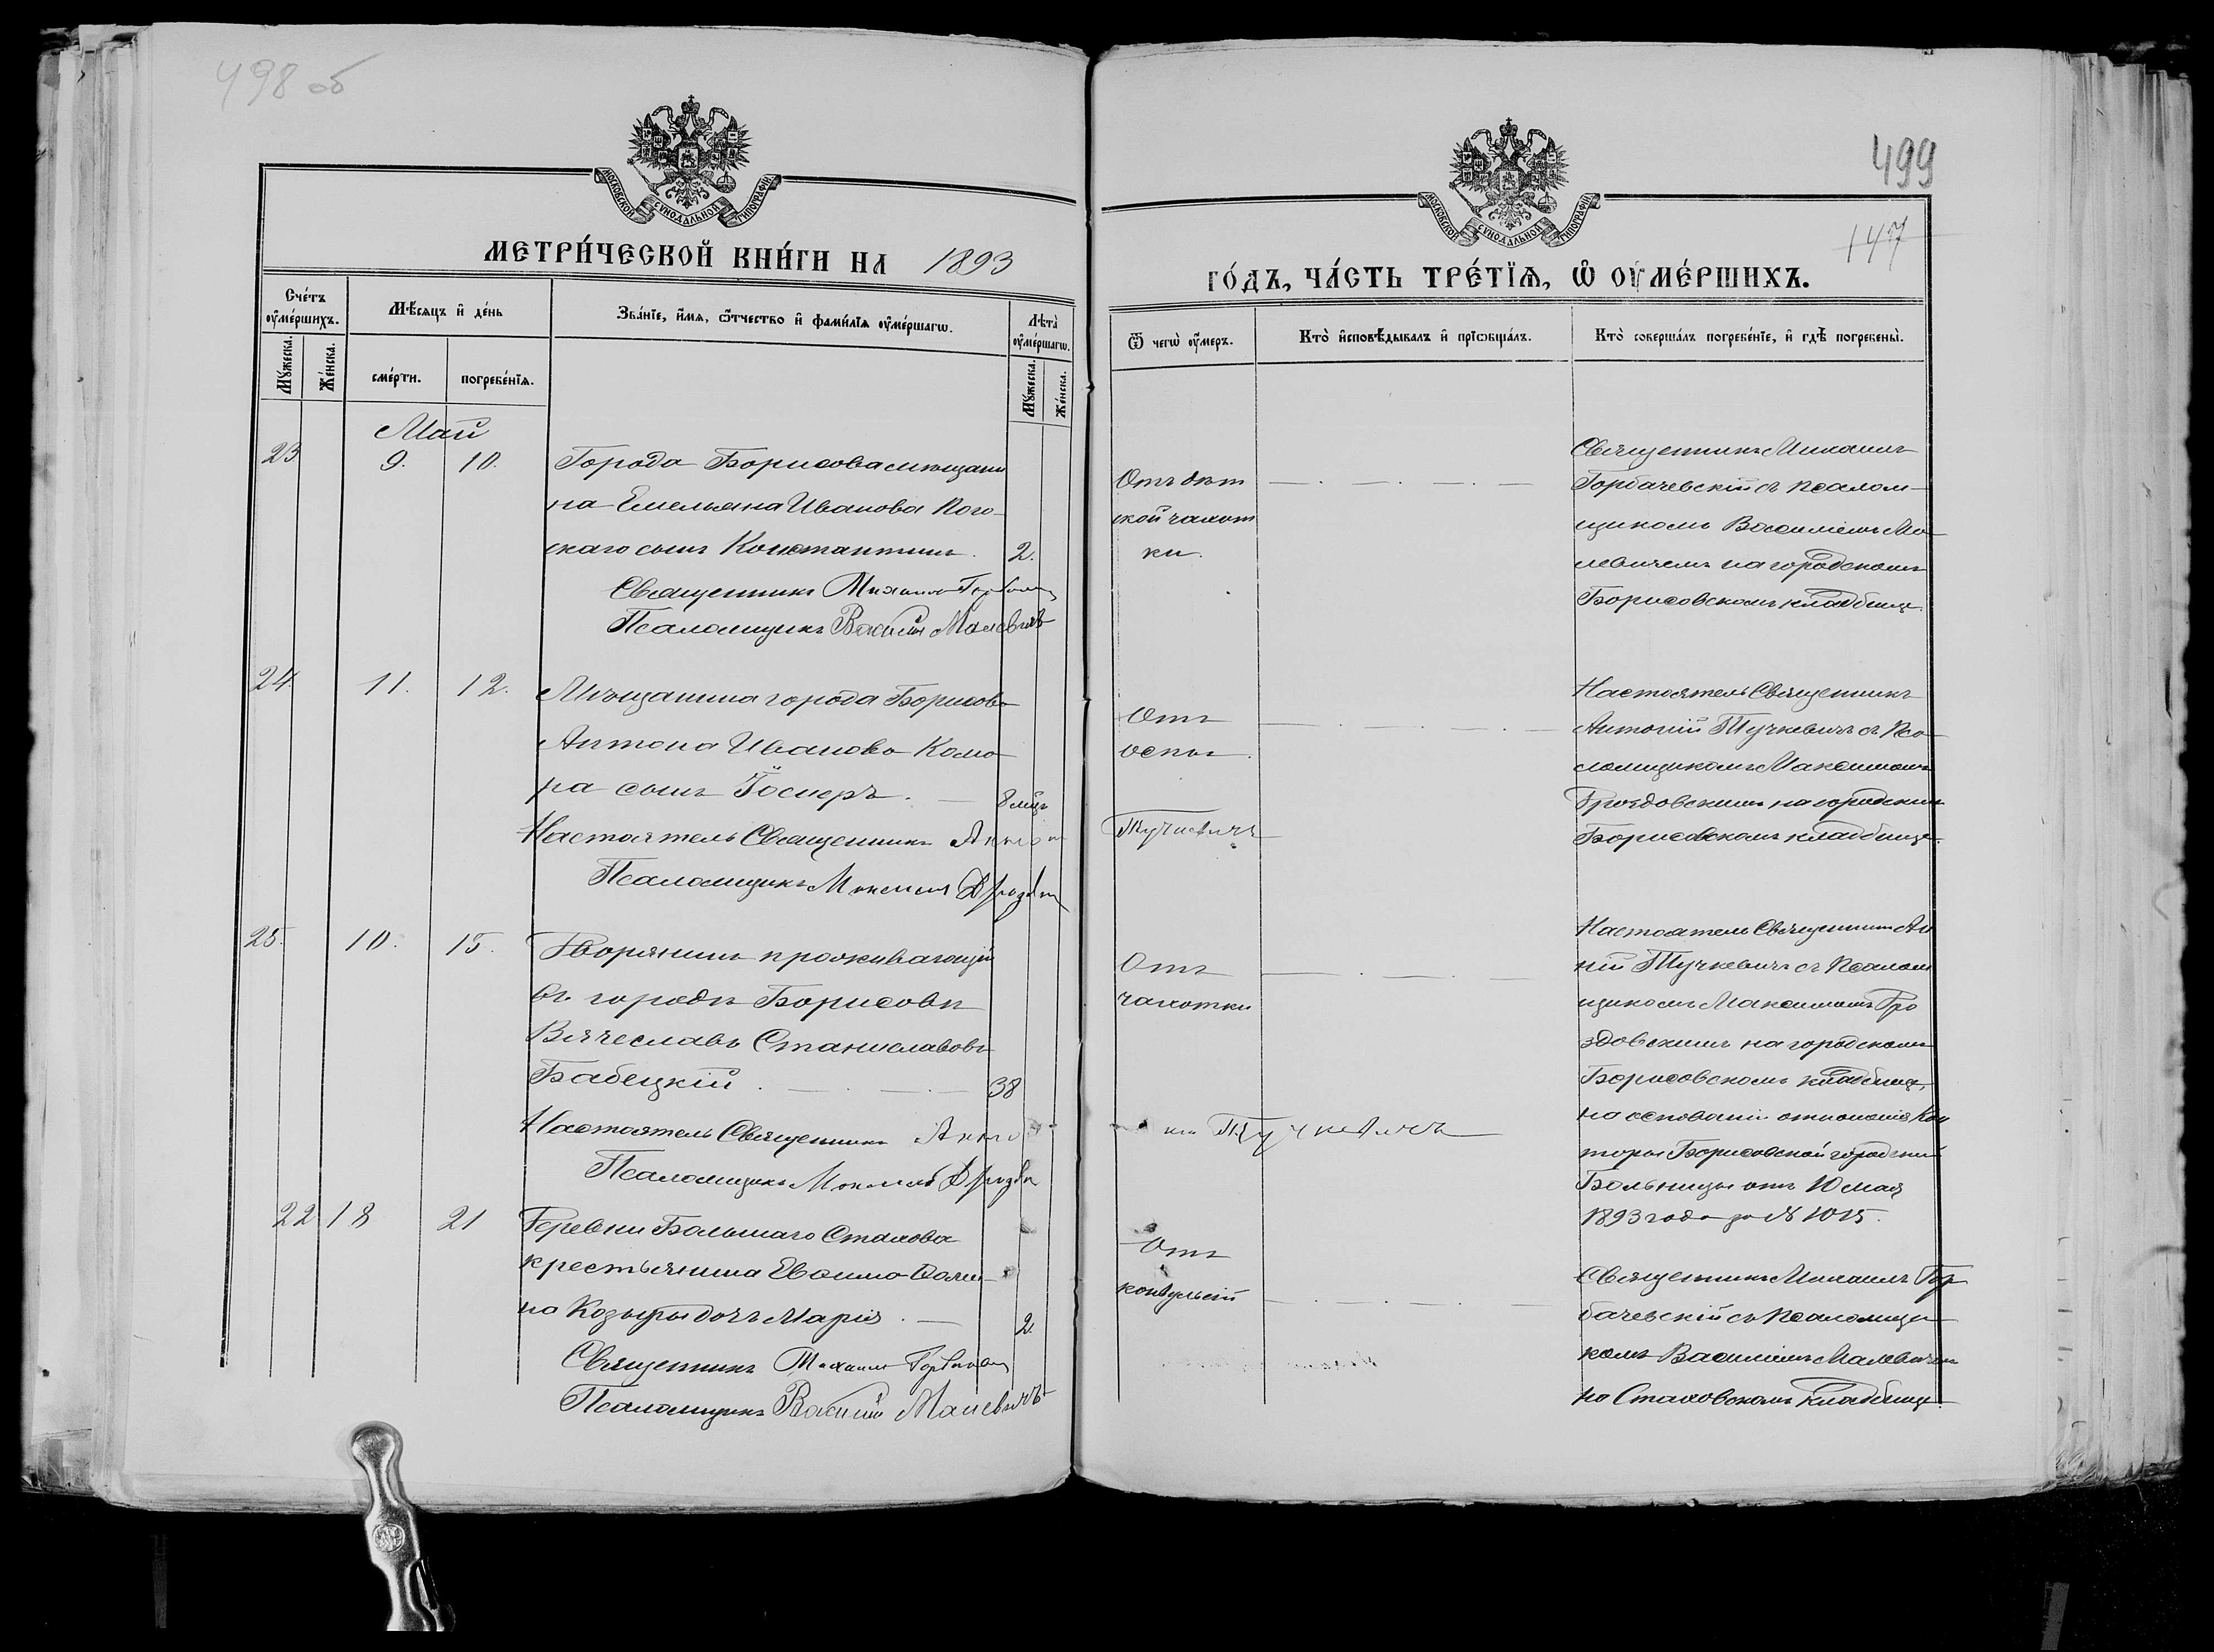 498 об
МОСКОВСКОЙ СѴНОДАЛЬНОЙ ТИПОГРАФІИ
МЕТРИ́ЧЕСКОЙ КНИ́ГИ НА 1893
Сче́тъ ѹ҆ме́ршихъ.
Мѣ́сяцъ и҆ де́нь
Зва́нїе, и҆́мѧ, ѻ҆́тчество и҆ фами́лїѧ ѹ҆ме́ршагѡ.
Лѣта̀ ѹ҆ме́ршагѡ.
Мꙋ́жеска.
Же́нска.
сме́рти.
погребе́нїѧ.
Мꙋ́жеска.
Же́нска.
Май
23 9. 10. Города Борисова мѣщани
на Емельяна Иванова
скаго сынъ Константинъ. 2.
Священникъ Михаилъ
Псаломщикъ Василій Малевичъ
24. 11. 12. Мѣщанина города Борисова
Антона Иванова Кома
ра сынъ Іосифъ. 8 мѣц
Настоятель Священникъ Антоні
Псаломщикъ Максимъ
25. 10. 15. Дворянинъ проживающій
въ городѣ Борисовѣ
Вячеславъ Станиславовъ
Бабецкій. 38
Настоятель Священникъ Анто
Псаломщикъ Максимъ
22 18 21 Деревни Большаго Стахова
крестьянина
на Козыры дочь Марія. 2.
Священникъ Михаилъ
Псаломщикъ Василій Малевичъ
499
147
МОСКОВСКОЙ СѴНОДАЛЬНОЙ ТИПОГРАФІИ
ГО́ДЪ, ЧА́СТЬ ТРЕ́ТЇѦ, Ѡ҆ ОУ҆МЕ́РШИХЪ.
Ѿ чегѡ̀ ѹ҆́меръ.
Кто̀ и҆сповѣ́дывалъ и҆ прїѡбща́лъ.
Кто̀ соверша́лъ погребе́нїе, и҆ гдѣ̀ погребены̀.
Отъ дѣт
ской чахот
ки.
Священникъ Михаилъ
Горбачевскій съ псалом-
щикомъ Василіемъ Ма-
левичемъ на городскомъ
Борисовскомъ кладбищѣ.
Отъ
оспы.
Тучкевичъ
Настоятель Священникъ
Антоній Тучкевичъ съ пса-
ломщикомъ Максимомъ
Дроздовскимъ на городскомъ
Борисовскомъ кладбищѣ.
Отъ
чахотки
ній Тучкевичъ
Настоятель Священникъ Анто
ній Тучкевичъ съ псалом
щикомъ Максимомъ Дро
здовскимъ на городскомъ
Борисовскомъ кладбищѣ,
на основаніи отношенія Кон
торы Борисовской городской
Больницы отъ 10 мая
1893 года за № 1015.
Отъ
конвульсій
Священникъ Михаилъ Гор
бачевскій съ псаломщи
комъ Василіемъ Малевичемъ
на Стаховскомъ кладбищѣ.